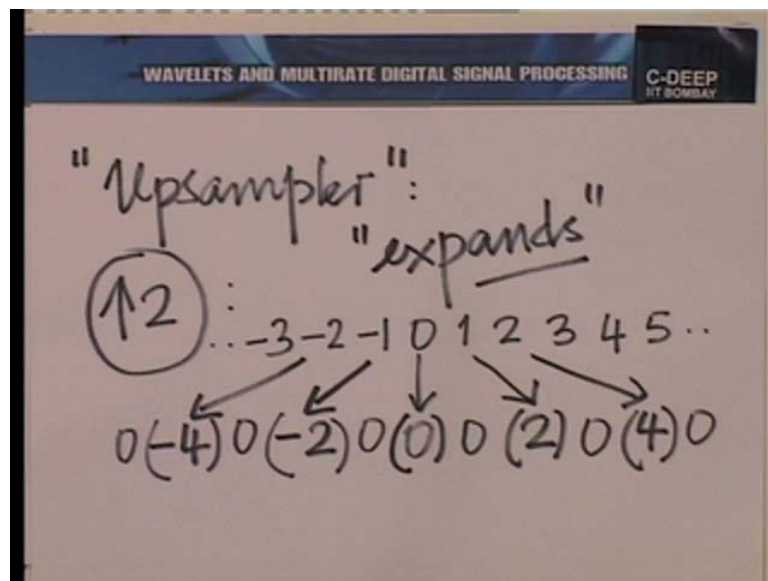 WAVELETS AND MULTIRATE DIGITAL SIGNAL PROCESSING
C-DEEP
IIT BOMBAY
"Upsampler":
"expands"
↑2 :
..-3 -2 -1 0 1 2 3 4 5 ..
0 (-4) 0 (-2) 0 (0) 0 (2) 0 (4) 0